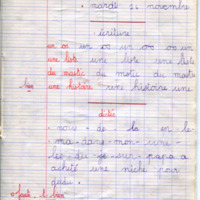 mardi 21 novembre
écriture
un os un os un os un os
une liste une liste une liste
du mastic du mastic du mastic
bien une histoire une histoire une
dictée
nous - de - la - en - le -
ma - dans - mon - une -
les - du - je - sur - papa a
acheté une niche pour